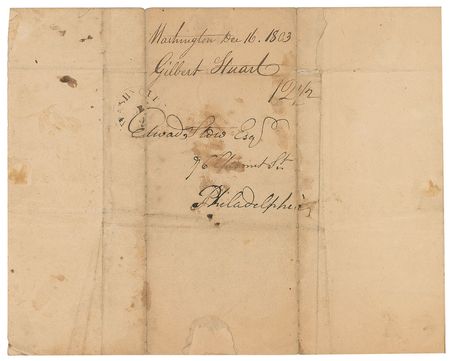 Washington Dec 16. 1803
Gilbert Stuart
12½
Edward Stow Esqr
76 St.
Philadelphia